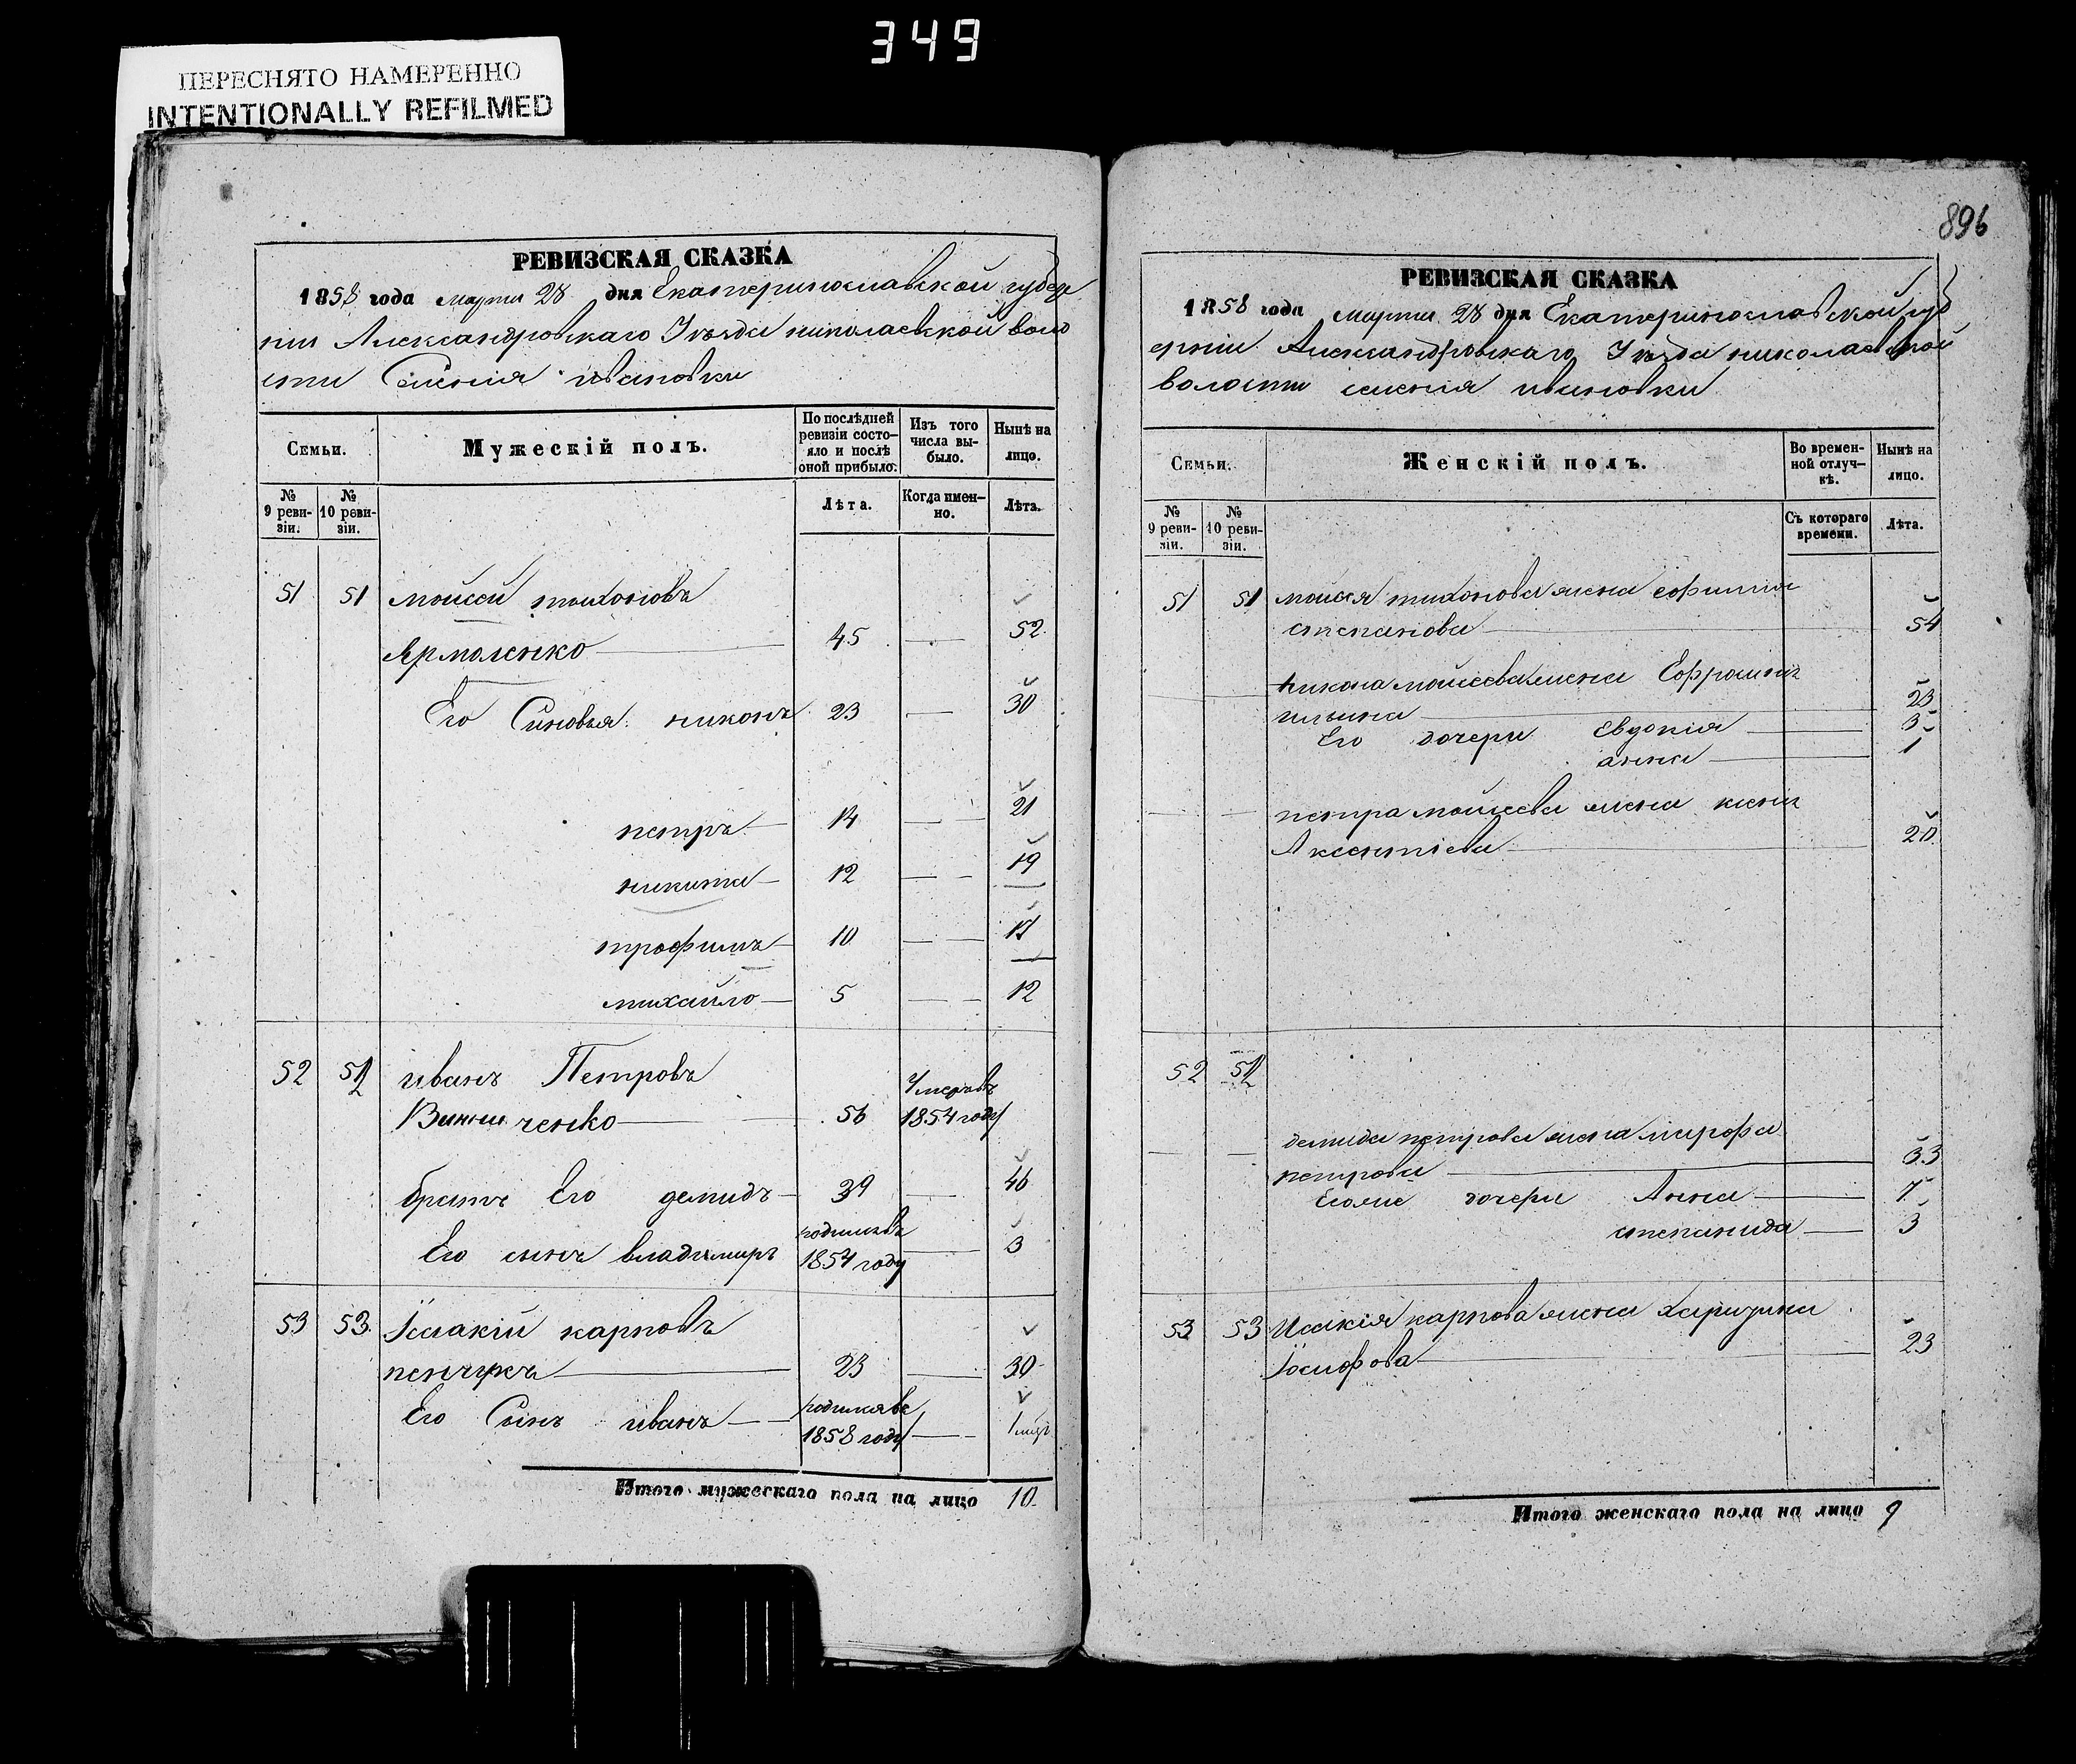 349
ПЕРЕСНЯТО НАМЕРЕННО
INTENTIONALLY REFILMED
РЕВИЗСКАЯ СКАЗКА
1858 года марта 28 дня Екатеринославской губер
нии Александровскаго Уезда николаевской воло
сти Селения ивановки
Семьи.
Мужескій полъ.
По послѣдней ревизіи состо–яло и послѣ оной прибыло.
Изъ того числа вы–было.
Нынѣ на лицо.
№ 9 реви–зіи.
№ 10 реви–зіи.
Лѣта.
Когда имен–но.
Лѣта.
51 51 мойсей тихоновъ
Ярмоленко 45 — 52
Его Синовья никонъ 23 — 30
петръ 14 — 21
никита 12 — 19
трофимъ 10 — 17
михайло 5 — 12
52 52 иванъ Петровъ
Винниченко 56 Умеръ въ 1854 году
братъ Его демидъ 39 — 46
Его сынъ владимиръ родился въ 1854 году — 3
53 53 Ісаакій карповъ
23 — 30
Его Сынъ иванъ родился въ 1858 году — 1 мцъ
Итого мужескаго пола на лицо 10
896
РЕВИЗСКАЯ СКАЗКА
1858 года марта 28 дня Екатеринославской губ
ерніи Александровскаго Уезда николаевской
волости селения ивановки
Семьи.
Женскій полъ.
Во времен–ной отлуч–кѣ.
Нынѣ на лицо.
№ 9 реви–зіи.
№ 10 реви–зіи.
Съ котораго времени.
Лѣта.
51 51 мойсея тихонова жена ефимия
степанова 54
никона мойсеева жена Ефросиния
ильина 23
Его дочери Евдокія 3
анна 1
петра мойсеева жена ксения
Аксентіева 20
52 52
демида петрова жена марфа
петрова 33
Егоже дочери Анна 7
степанида 3
53 53 Исакія карпова жена харитина
Іосифова 23
Итого женскаго пола на лицо 9